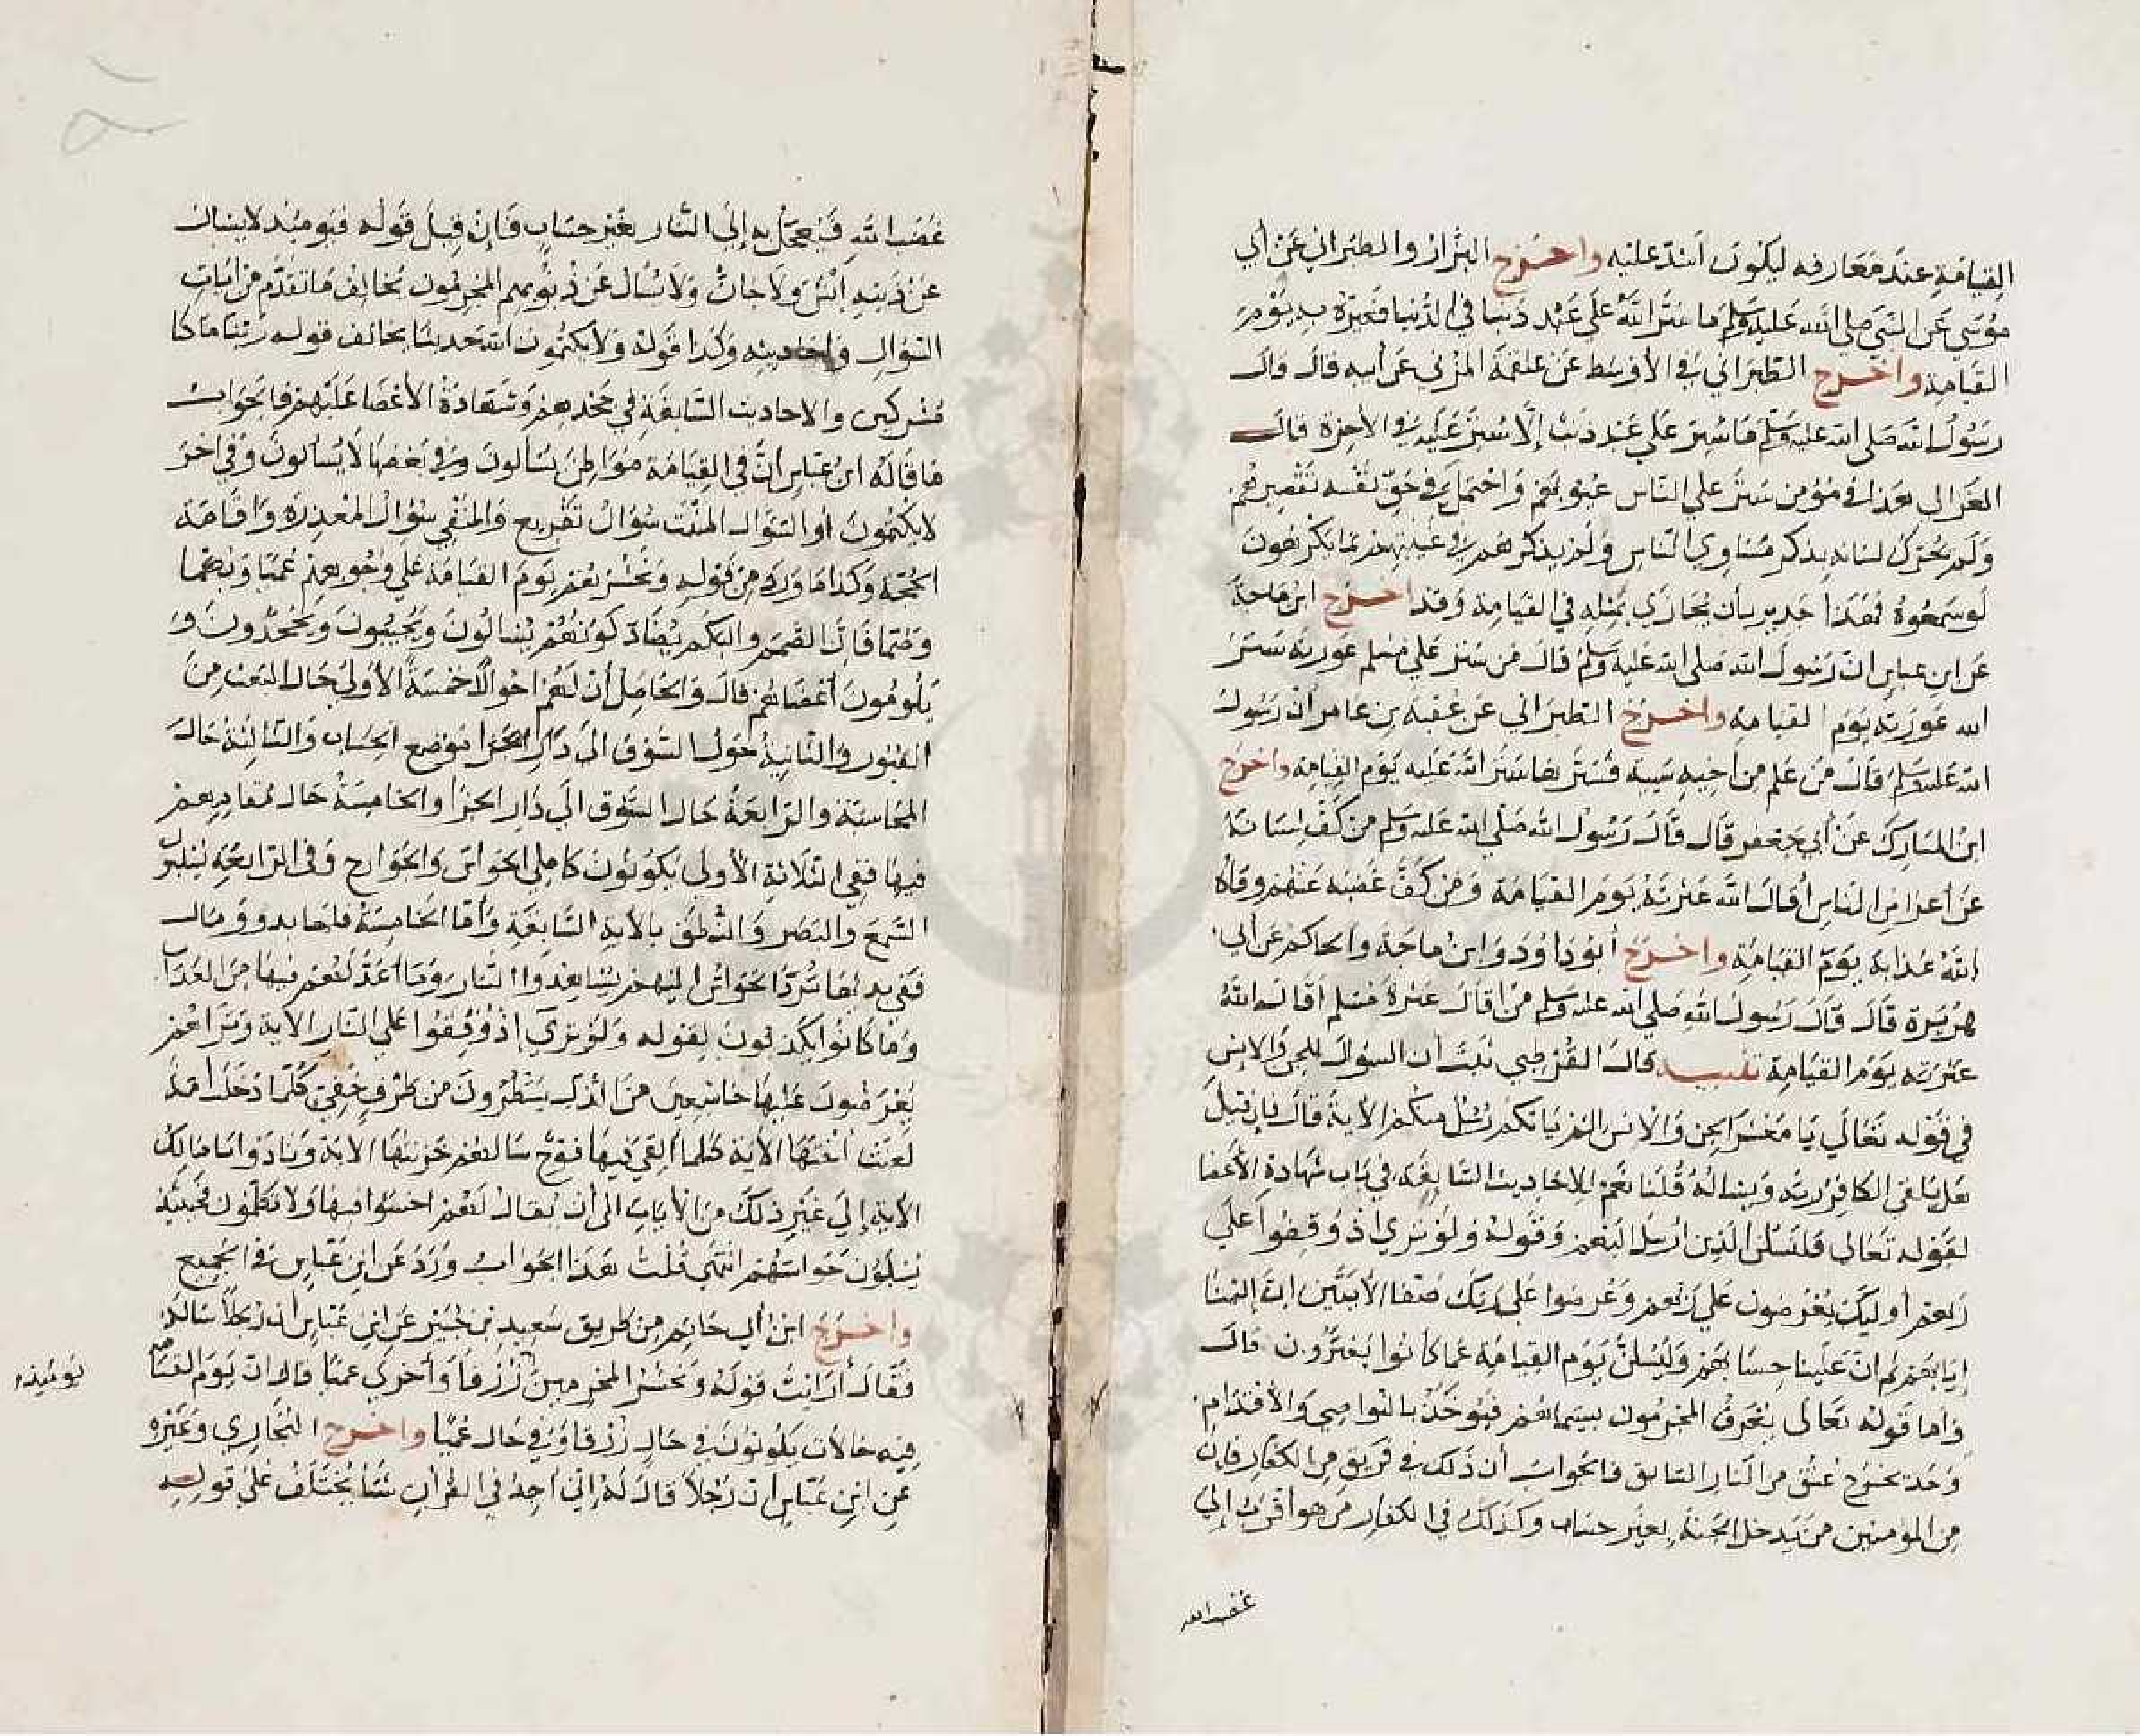 القيامة عند معارفه ليكون أشد عليه وأخرج البزار والطبراني عن أبي
موسى عن النبي صلى الله عليه وسلم ما ستر الله على عبد ذنبا في الدنيا فعيره به يوم
القيامة وأخرج الطبراني في الأوسط عن علقمة المزني عن أبيه قال قال
رسول الله صلى الله عليه وسلم ما ستر على عبد ذنب إلا ستر عليه في الآخرة قال
الغزالي بعد هذا في مؤمن ستر على الناس عيوبهم واحتمل في حق نفسه تقصيرهم
ولم يحرك لسانه بذكر مساوي الناس ولم يذكرهم في غيبتهم بما يكرهون
لو سمعوه فهذا جدير بأن يجازى بمثله في القيامة وقد أخرج ابن ماجة
عن ابن عباس ان رسول الله صلى الله عليه وسلم قال من ستر على مسلم عورته ستر
الله عورته يوم القيامة وأخرج الطبراني عن عقبة بن عامر أن رسول
الله عليه وسلم قال من علم من أخيه سيئة فسترها ستر الله عليه يوم القيامة وأخرج
ابن المبارك عن أبي جعفر قال قال رسول الله صلى الله عليه وسلم من كف لسانه
عن أعراض الناس أقال الله عثرته يوم القيامة ومن كف غضبه عنهم وقاه
الله عذابه يوم القيامة وأخرج أبو داود وابن ماجة والحاكم عن أبي
هريرة قال قال رسول الله صلى الله عليه وسلم من أقال عثرة مسلم أقال الله
عثرته يوم القيامة تنبيه قال القرطبي ثبت أن السؤال للجن والإنس
في قوله تعالى يا معشر الجن والإنس ألم يأتكم رسل منكم الآية قال فإن قيل
هل يلقى الكافر ربه ويسأله قلنا نعم للأحاديث السابقة في باب شهادة الأعضا
لقوله تعالى فلنسئلن الذين ارسل اليهم وقوله ولو ترى اذ وقفوا على
ربهم أوليك يعرضون على ربهم وعرضوا على ربك صفا الآيتين ان إلينا
إيابهم ثم ان علينا حسابهم وليسئلن يوم القيامة عما كانوا يفترون قال
وأما قوله تعالى يعرف المجرمون بسيماهم فيؤخذ بالنواصي والأقدام
وحديث يخرج عنق من النار السابق فالجواب أن ذلك في فريق من الكفار فإن
من المؤمنين من يدخل الجنة بغير حساب وكذلك في الكفار من هو أقرب إلى
غضب الله
غضب الله فيعجل به إلى النار بغير حساب فإن قيل قوله فيوميذ لا يسأل
عن ذنبه إنس ولا جان ولا يسأل عن ذنوبهم المجرمون يخالف ما تقدم من آيات
السؤال وأحاديثه وكذا قوله ولا يكتمون الله حديثا يخالف قوله ربنا ما كنا
مشركين والأحاديث السابقة في جحدهم وشهادة الأعضا عليهم فالجواب
ما قاله ابن عباس ان في القيامة مواطن يسألون وفي بعضها لا يسألون وفي آخر
لا يكتمون أو السؤال المثبت سؤال تقريع والمنفي سؤال المعذرة وإقامة
الحجة وكذا ما ورد من قوله ونحشرهم يوم القيامة على وجوههم عميا وبكما
وصما فإن الصمم والبكم يضاد كونهم يسالون ويجيبون ويجحدون و
يلومون أعضاهم قال والحاصل أن لهم احوالا خمسة الأولى حال البعث من
القبور والثانية حال السوق الى دار الجزا موضع الحساب والثالثة حال
المحاسبة والرابعة حال السوق الى دار الجزا والخامسة حال مقامهم
فيها ففي الثلاثة الأولى يكونون كاملي الحواس والجوارح وفي الرابعة يسلبون
السمع والبصر والنطق بالآية السابقة وأما الخامسة فلها بدو ومآل
ففي بدئها ترد الحواس اليهم ليشاهدوا النار وما أعد لهم فيها من العذاب
وما كانوا يكذبون لقوله ولو ترى إذ وقفوا على النار الآية وتراهم
يعرضون عليها خاشعين من الذل ينظرون من طرف خفي كلما دخلت أمة
لعنت أختها الآية كلما ألقي فيها فوج سألهم خزنتها الآية ونادوا يا مالك
الآية إلى غير ذلك من الآيات الى أن يقال لهم اخسئوا فيها ولا تكلمون فحينئذ
يسلبون حواسهم انتهى قلت هذا الجواب ورد عن ابن عباس في الجميع
وأخرج ابن أبي حاتم من طريق سعيد بن جبير عن ابن عباس أن رجلا سأله
فقال أرأيت قوله ونحشر المجرمين زرقا وأخرى عميا قال ان يوم القيامة
يوميذ
فيه حالات يكونون في حال زرقا وفي حال عميا وأخرج البخاري وغيره
عن ابن عباس ان رجلا قال له إني أجد في القرآن شيئا يختلف على قوله